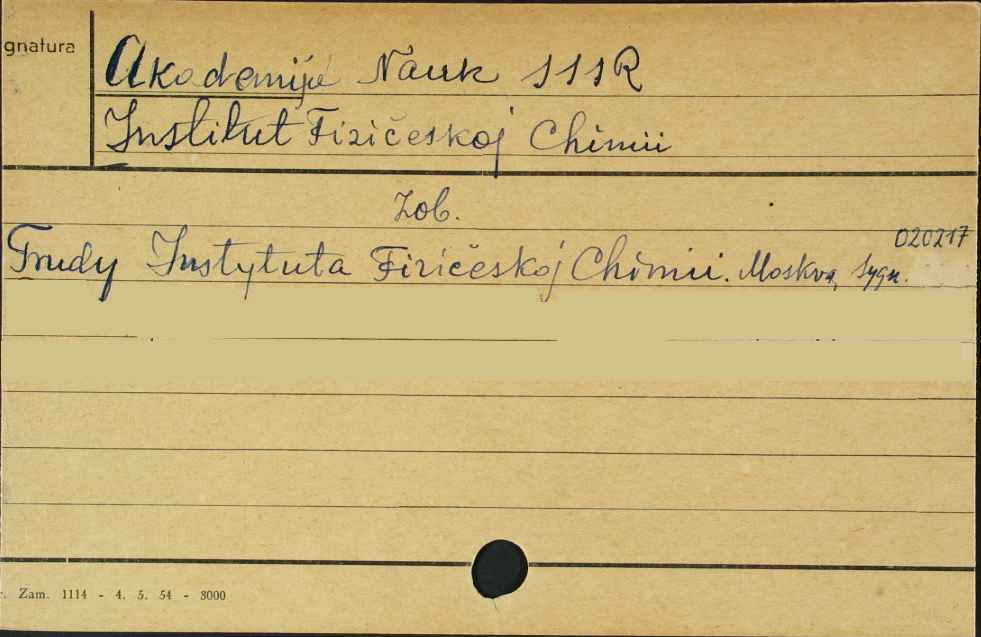 gnatura
Akademija Nauk SSSR
Institut Fizičeskoj Chimii
Zob.
020217
Trudy Instytuta Fizičeskoj Chimii. Moskva, Sygn.
r. Zam. 1114 - 4. 5. 54 - 3000